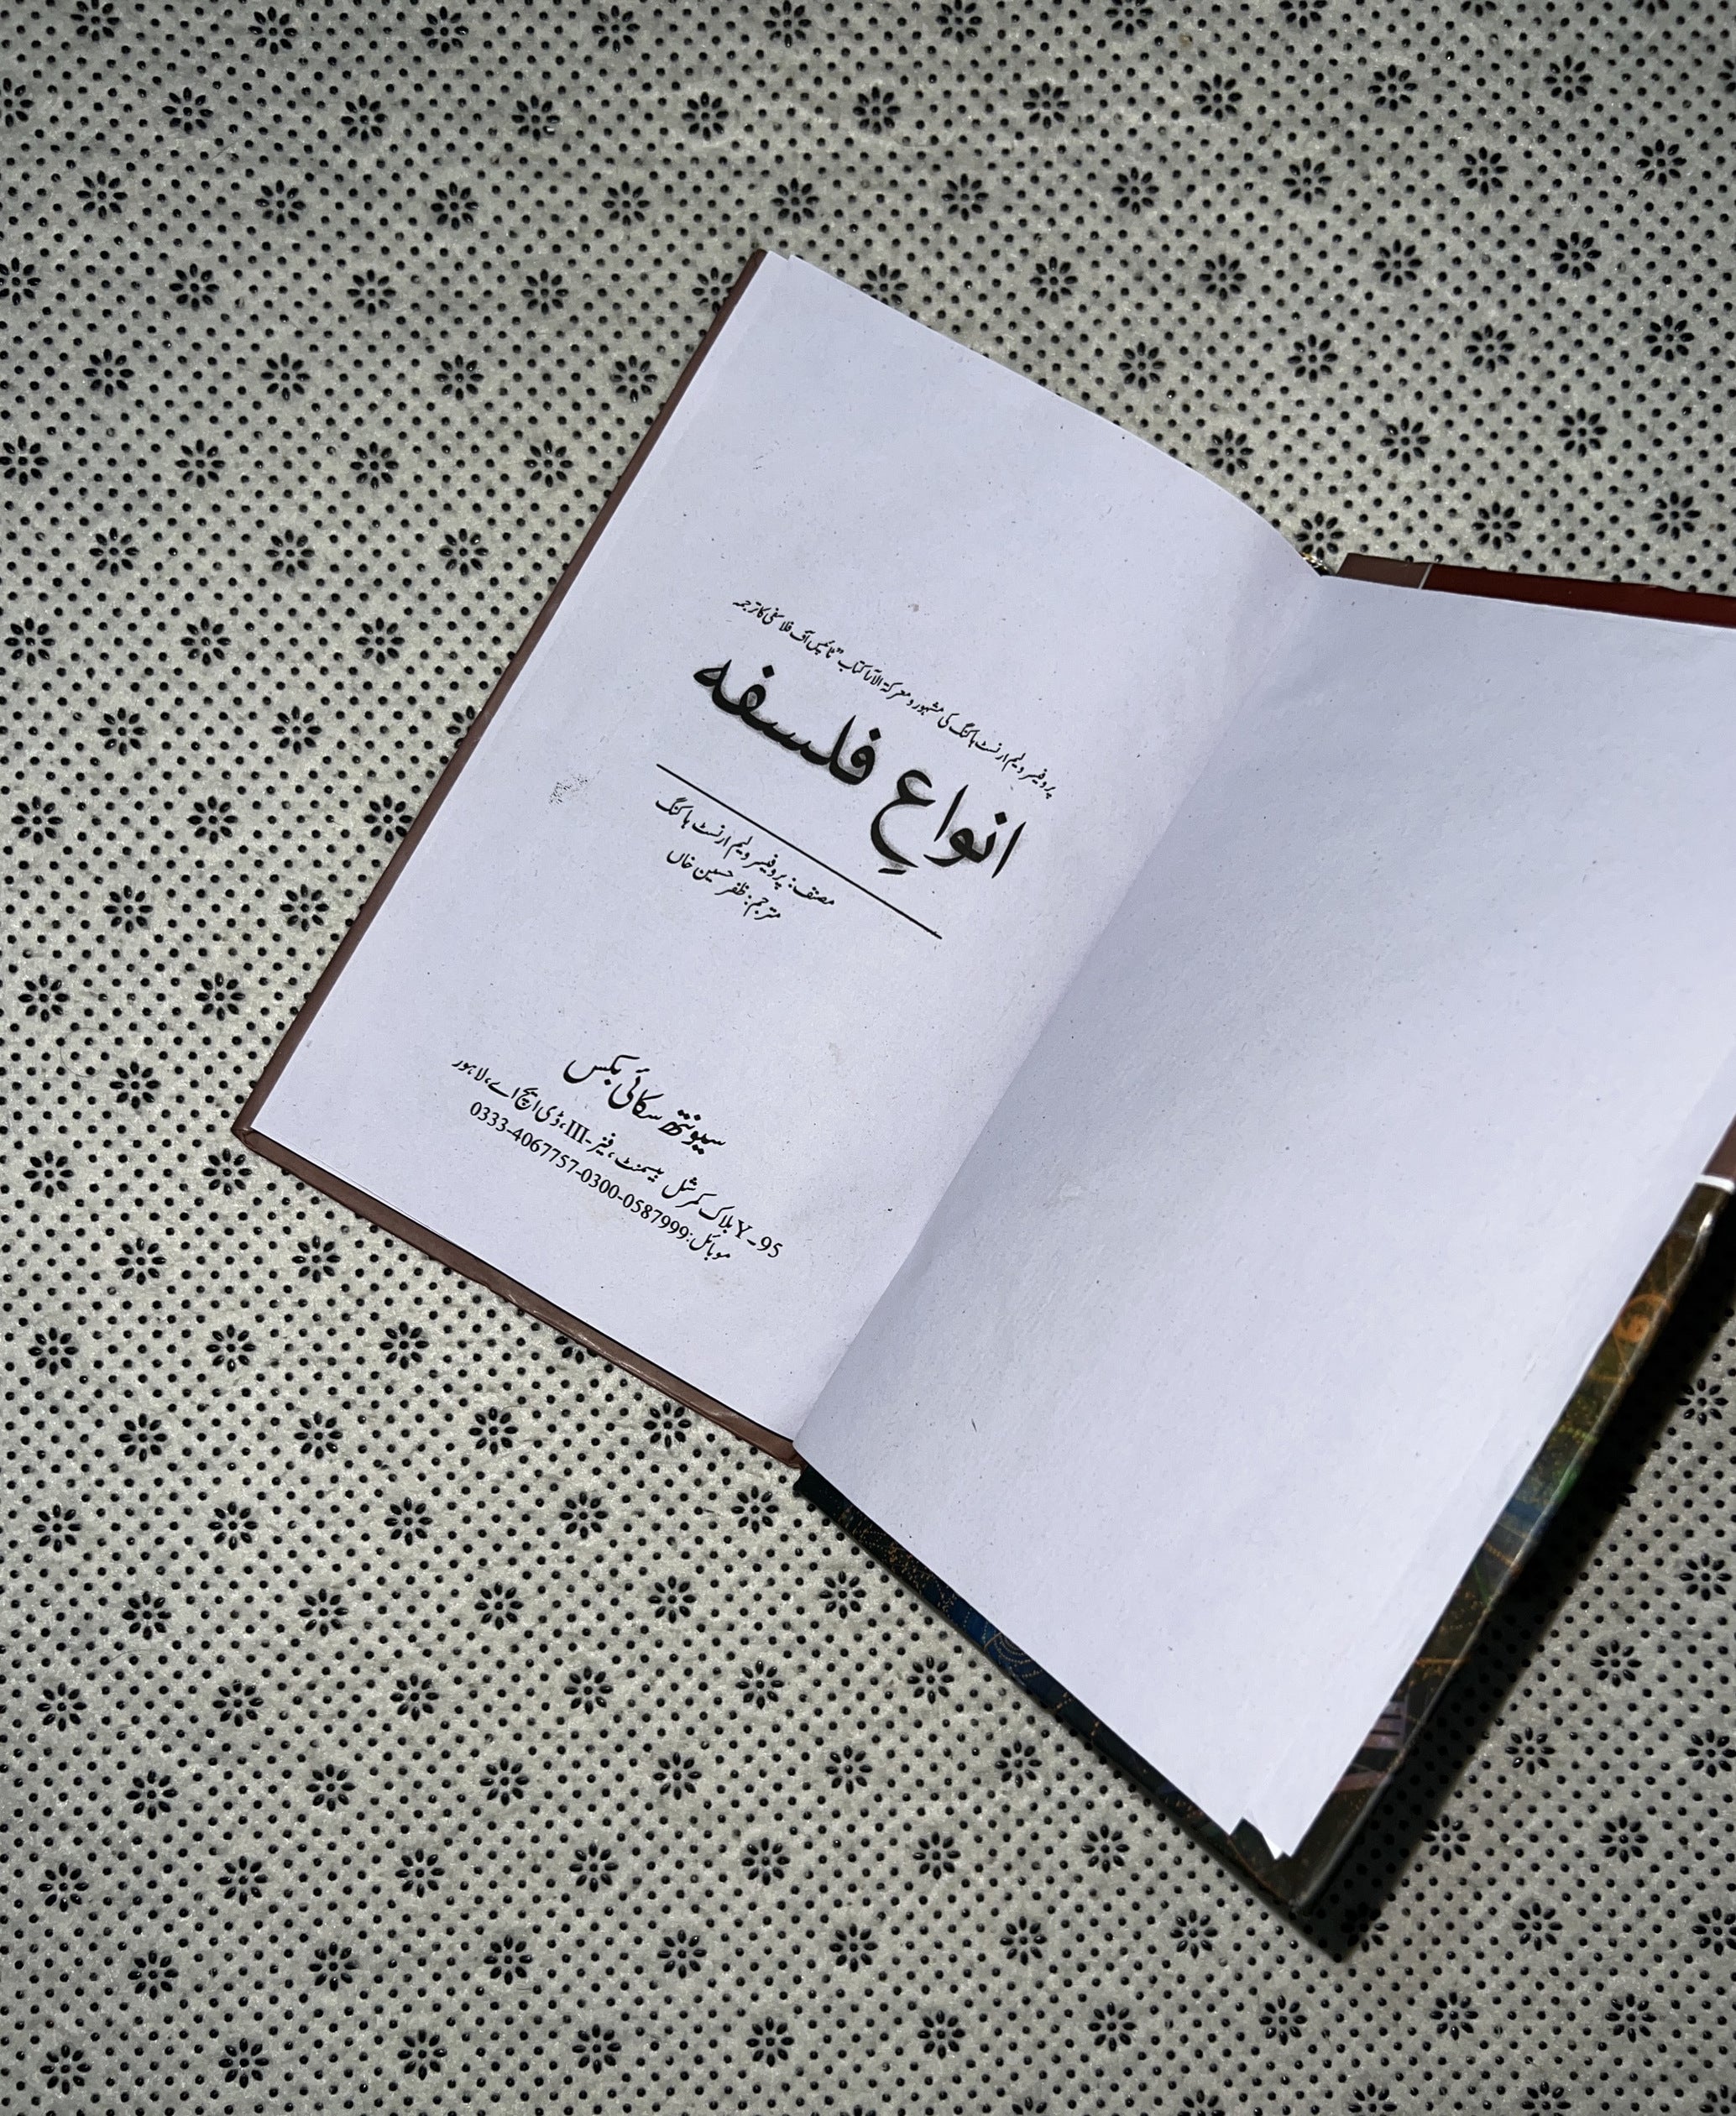 پروفیسر ولیم ارنسٹ ہاکنگ کی مشہور و معرکۃ الآرا کتاب "ٹائپس آف فلاسفی کا ترجمہ
انواعِ فلسفہ
مصنف: پروفیسر ولیم ارنسٹ ہاکنگ
مترجم: ظفر حسین خاں
سیونتھ سکائی بکس
95-Y بلاک کمرشل بیسمنٹ، فیز-III، ڈی ایچ اے، لاہور
موبائل: 0333-4067757-0300-0587999